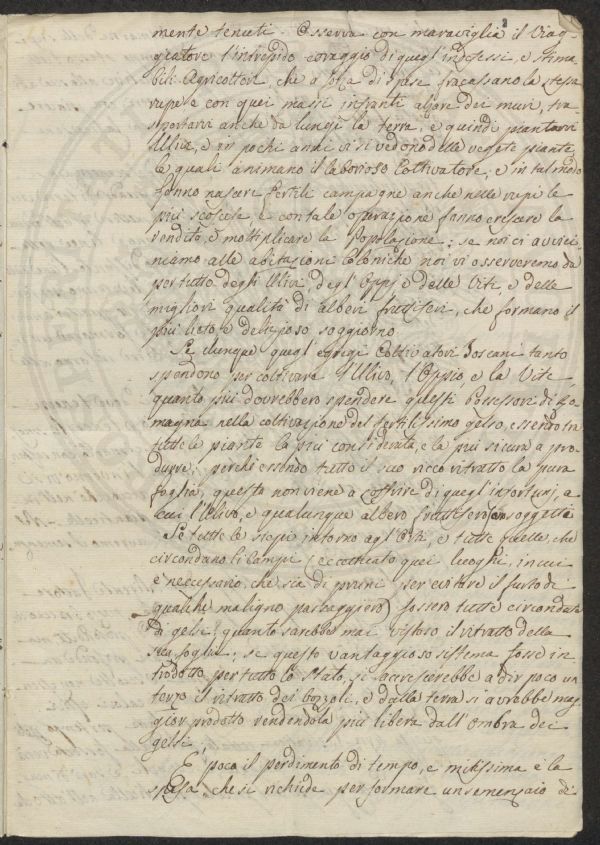 mente tenuti. Osserva con maraviglia il Viag-
giatore l'intrepido coraggio di quegl'indefessi, e stima
bili Agricoltori, che a forza di spese fracassano la stessa
rupe e con quei massi infranti alzare dei muri, tra
sportarvi anche da lungi la terra, e quindi piantarvi
Ulivi, e in pochi anni vi si vedono delle vegete piante
le quali animano il laborioso Coltivatore, e in tal modo
fanno nascere fertili campagne anche nelle rupi le
più scoscese, e con tale operazione fanno crescere la
vendita, e moltiplicare la Popolazione: se noi ci avvici-
niamo alle abitazioni Coloniche noi vi osserveremo da
per tutto degli Ulivi, degl'Oppj e delle Viti, e delle
migliori qualità di alberi fruttiferi, che formano il
più lieto e delizioso soggiorno.
Se dunque quegl'egregi Coltivatori Toscani tanto
spendono per coltivare l'Ulivo, l'Oppio e la Vite,
quanto più dovrebbero spendere questi Possessori di Ro
magna nella coltivazione del fertilissimo gelso, essendo tra
tutte le piante la più considerata, e la più sicura a pro
durre; perchè essendo tutto il suo ricco ritratto la pura
foglia, questa non viene a soffrire di quegl'infortunj, a
cui l'Ulivo, e qualunque albero fruttifero van soggetti.
Se tutte le siepi intorno agl'Orti, e tutte quelle, che
circondano li Campi (eccettuato quei luoghi, in cui
è necessario, che sia di pruni per evitare il furto di
qualche maligno passaggiero) fossero tutte circondate
di gelsi, quanto sarebbe mai vistoso il ritratto della
sua foglia; se questo vantaggioso sistema fosse in
trodotto per tutto lo Stato, si accrescerebbe a dir poco un
terzo il ritratto dei bozzoli, e dalla terra si avrebbe mag
gior prodotto rendendola più libera dall'ombra dei
gelsi.
E' poco il perdimento di tempo, e mitissima è la
spesa, che si richiede per formare un semenzaio di